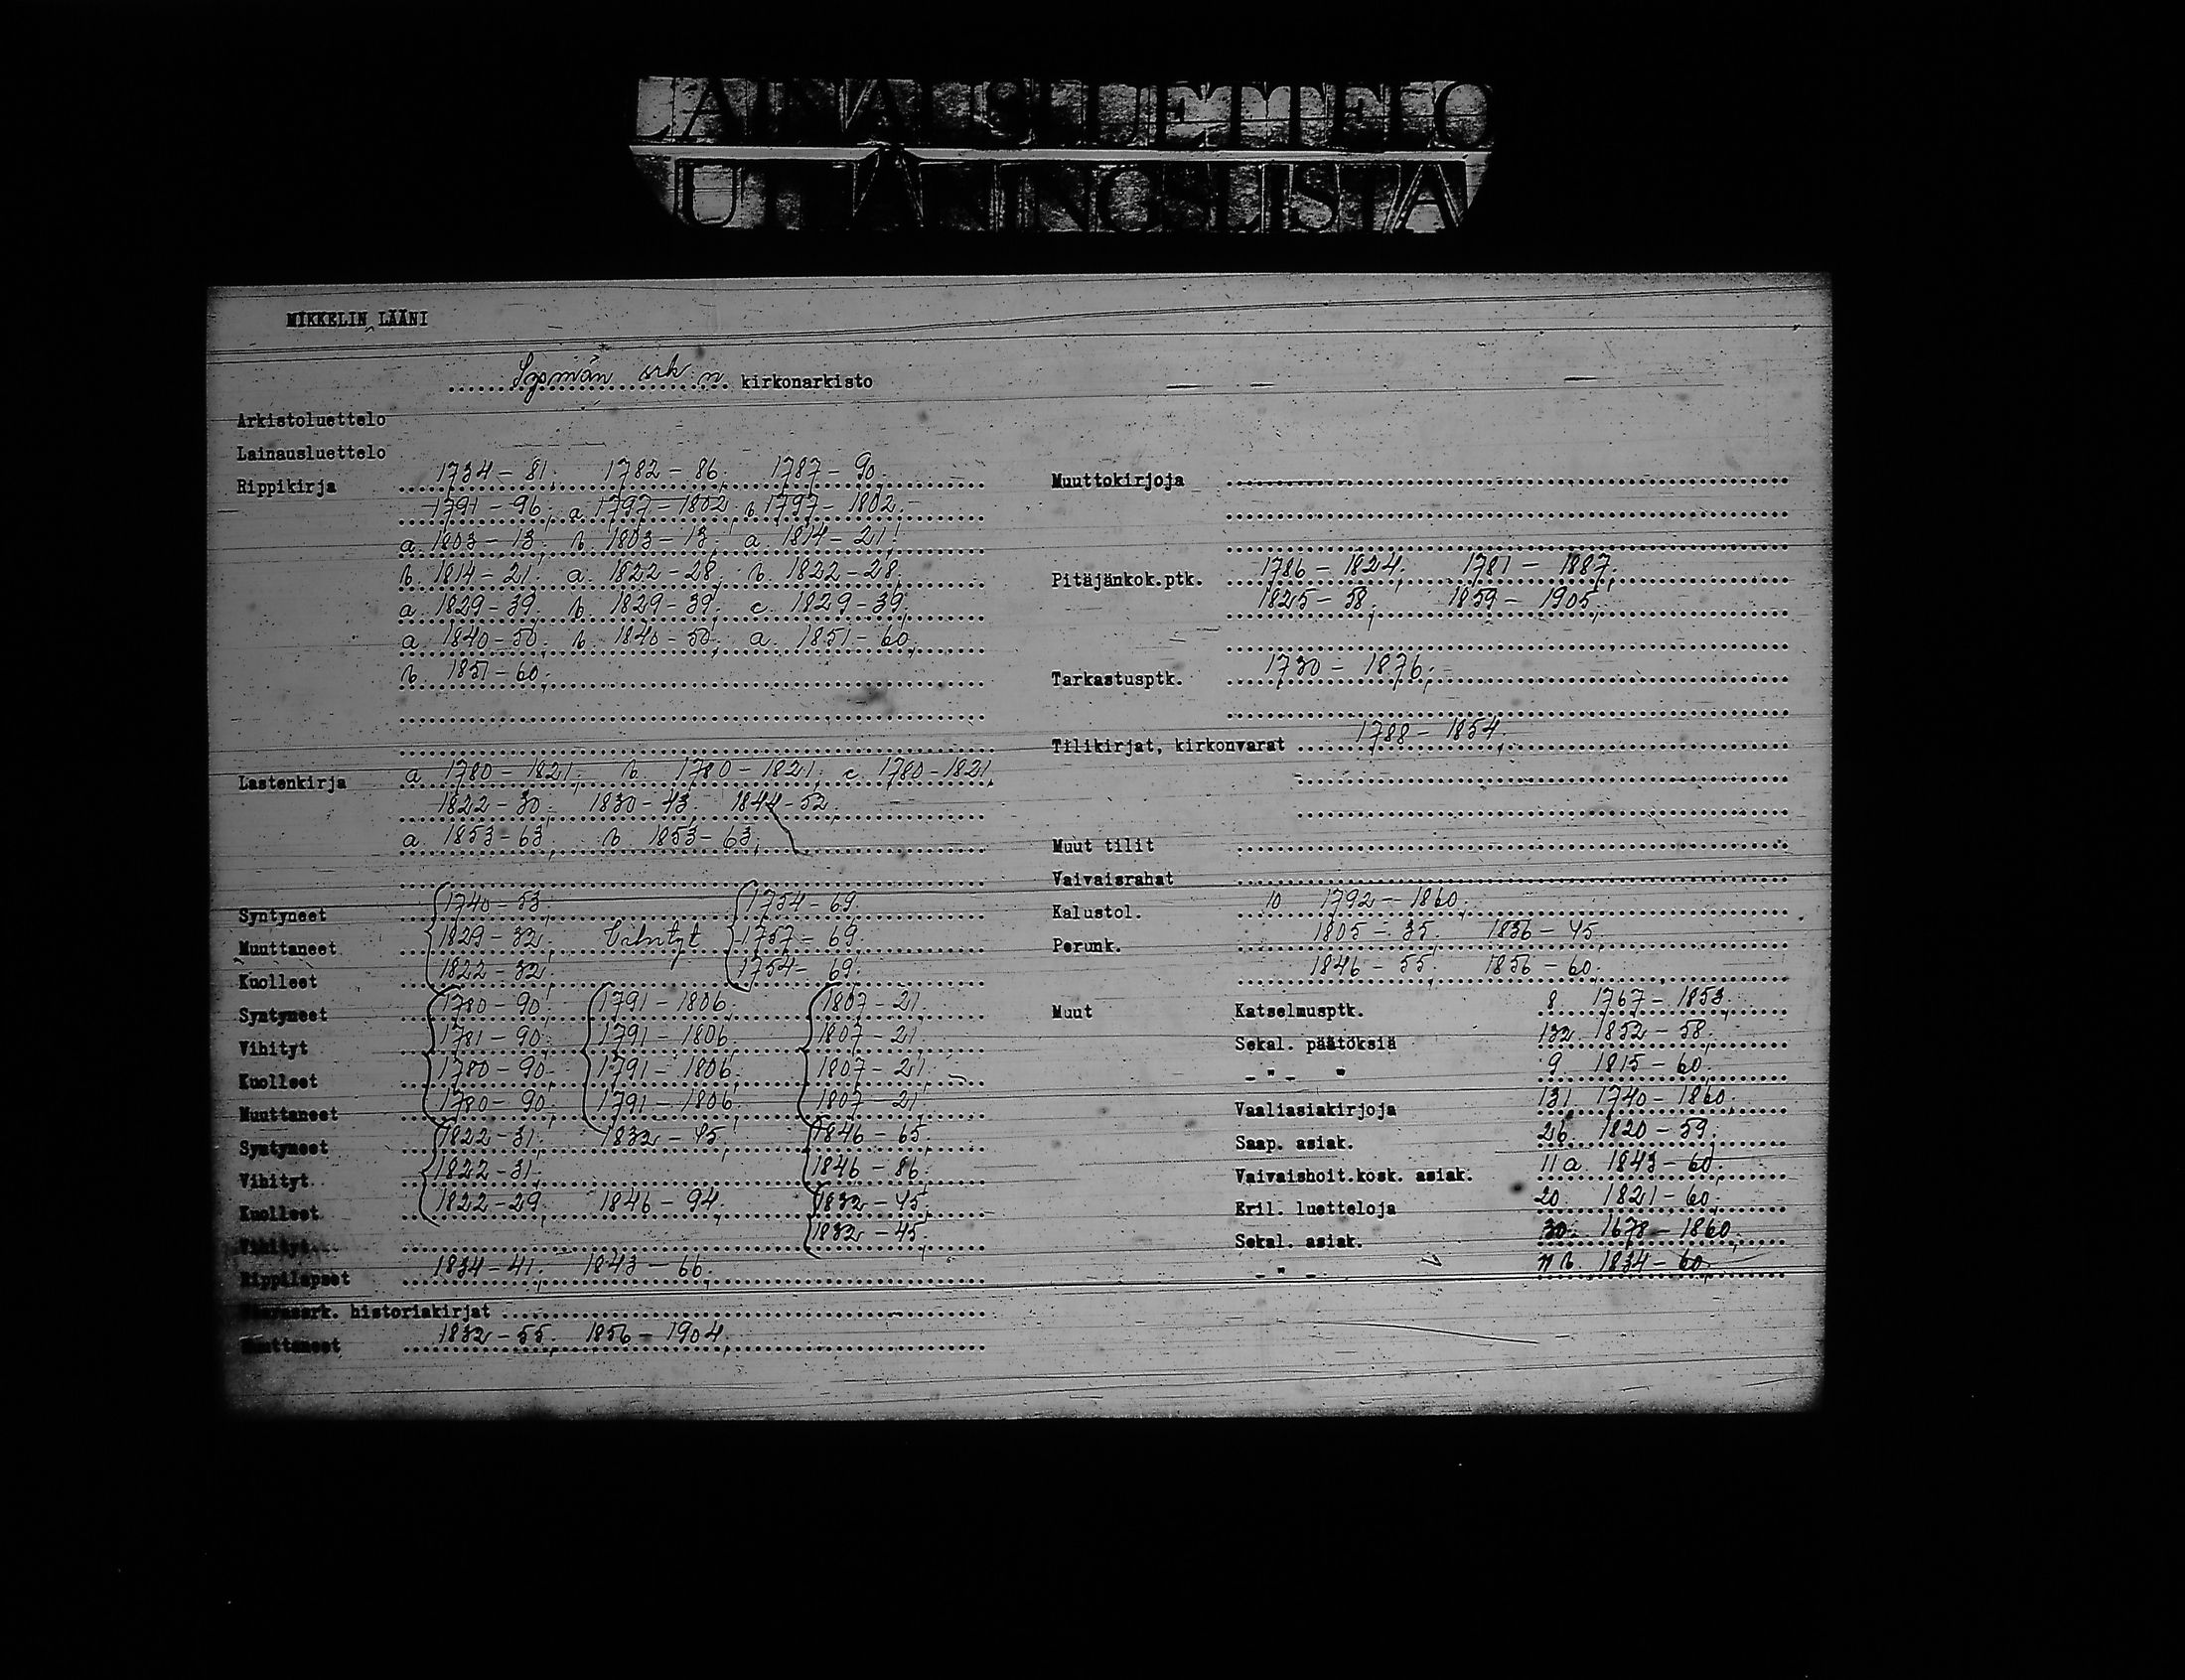 LAINAUSLUETTELO
UTLÅNINGSLISTA
MIKKELIN LÄÄNI
Sysmän srk:n kirkonarkisto
Arkistoluettelo
Lainausluettelo
Rippikirja 1734-81; 1782-86; 1787-90;
1791-96; a. 1797-1802; b. 1797-1802;
a. 1803-13; b. 1803-13; a. 1814-21;
b. 1814-21; a. 1822-28; b. 1822-28;
a. 1829-39; b. 1829-39; c. 1829-39;
a. 1840-50; b. 1840-50; a. 1851-60;
b. 1851-60;
Lastenkirja a. 1780-1821; b. 1780-1821; c. 1780-1821;
1822-30; 1830-43; 1844-52;
a. 1853-63; b. 1853-63;
Syntyneet 1740-53; 1754-69;
Muuttaneet 1829-32; Vihityt 1757-69;
Kuolleet 1822-32; 1754-69;
Syntyneet 1780-90; 1791-1806; 1807-21;
Vihityt 1781-90; 1791-1806; 1807-21;
Kuolleet 1780-90; 1791-1806; 1807-21;
Muuttaneet 1780-90; 1791-1806; 1807-21;
Syntyneet 1822-31; 1832-45; 1846-65;
Vihityt 1822-31; 1846-86;
Kuolleet 1822-29; 1846-94; 1832-45;
Vihityt 1832-45;
Rippilapset 1834-41; 1843-66;
historiakirjat
Muuttaneet 1832-55; 1856-1904;
Muuttokirjoja
Pitäjänkok.ptk. 1786-1824; 1781-1887;
1825-58; 1859-1905;
Tarkastusptk. 1730-1876;
Tilikirjat, kirkonvarat 1788-1854;
Muut tilit
Vaivaisrahat
Kalustol. 10 1792-1860;
Perunk. 1805-35; 1836-45;
1846-55; 1856-60;
Muut Katselmusptk. 8 1767-1853;
Sekal. päätöksiä 132 1852-58;
- " - " 9. 1815-60;
Vaaliasiakirjoja 131 1740-1860;
Saap. asiak. 26. 1820-59;
Vaivaishoit.kosk. asiak. 11a. 1843-60;
Eril. luetteloja 20. 1821-60;
Sekal. asiak. 30. 1678-1860;
- " - 11 b. 1834-60;